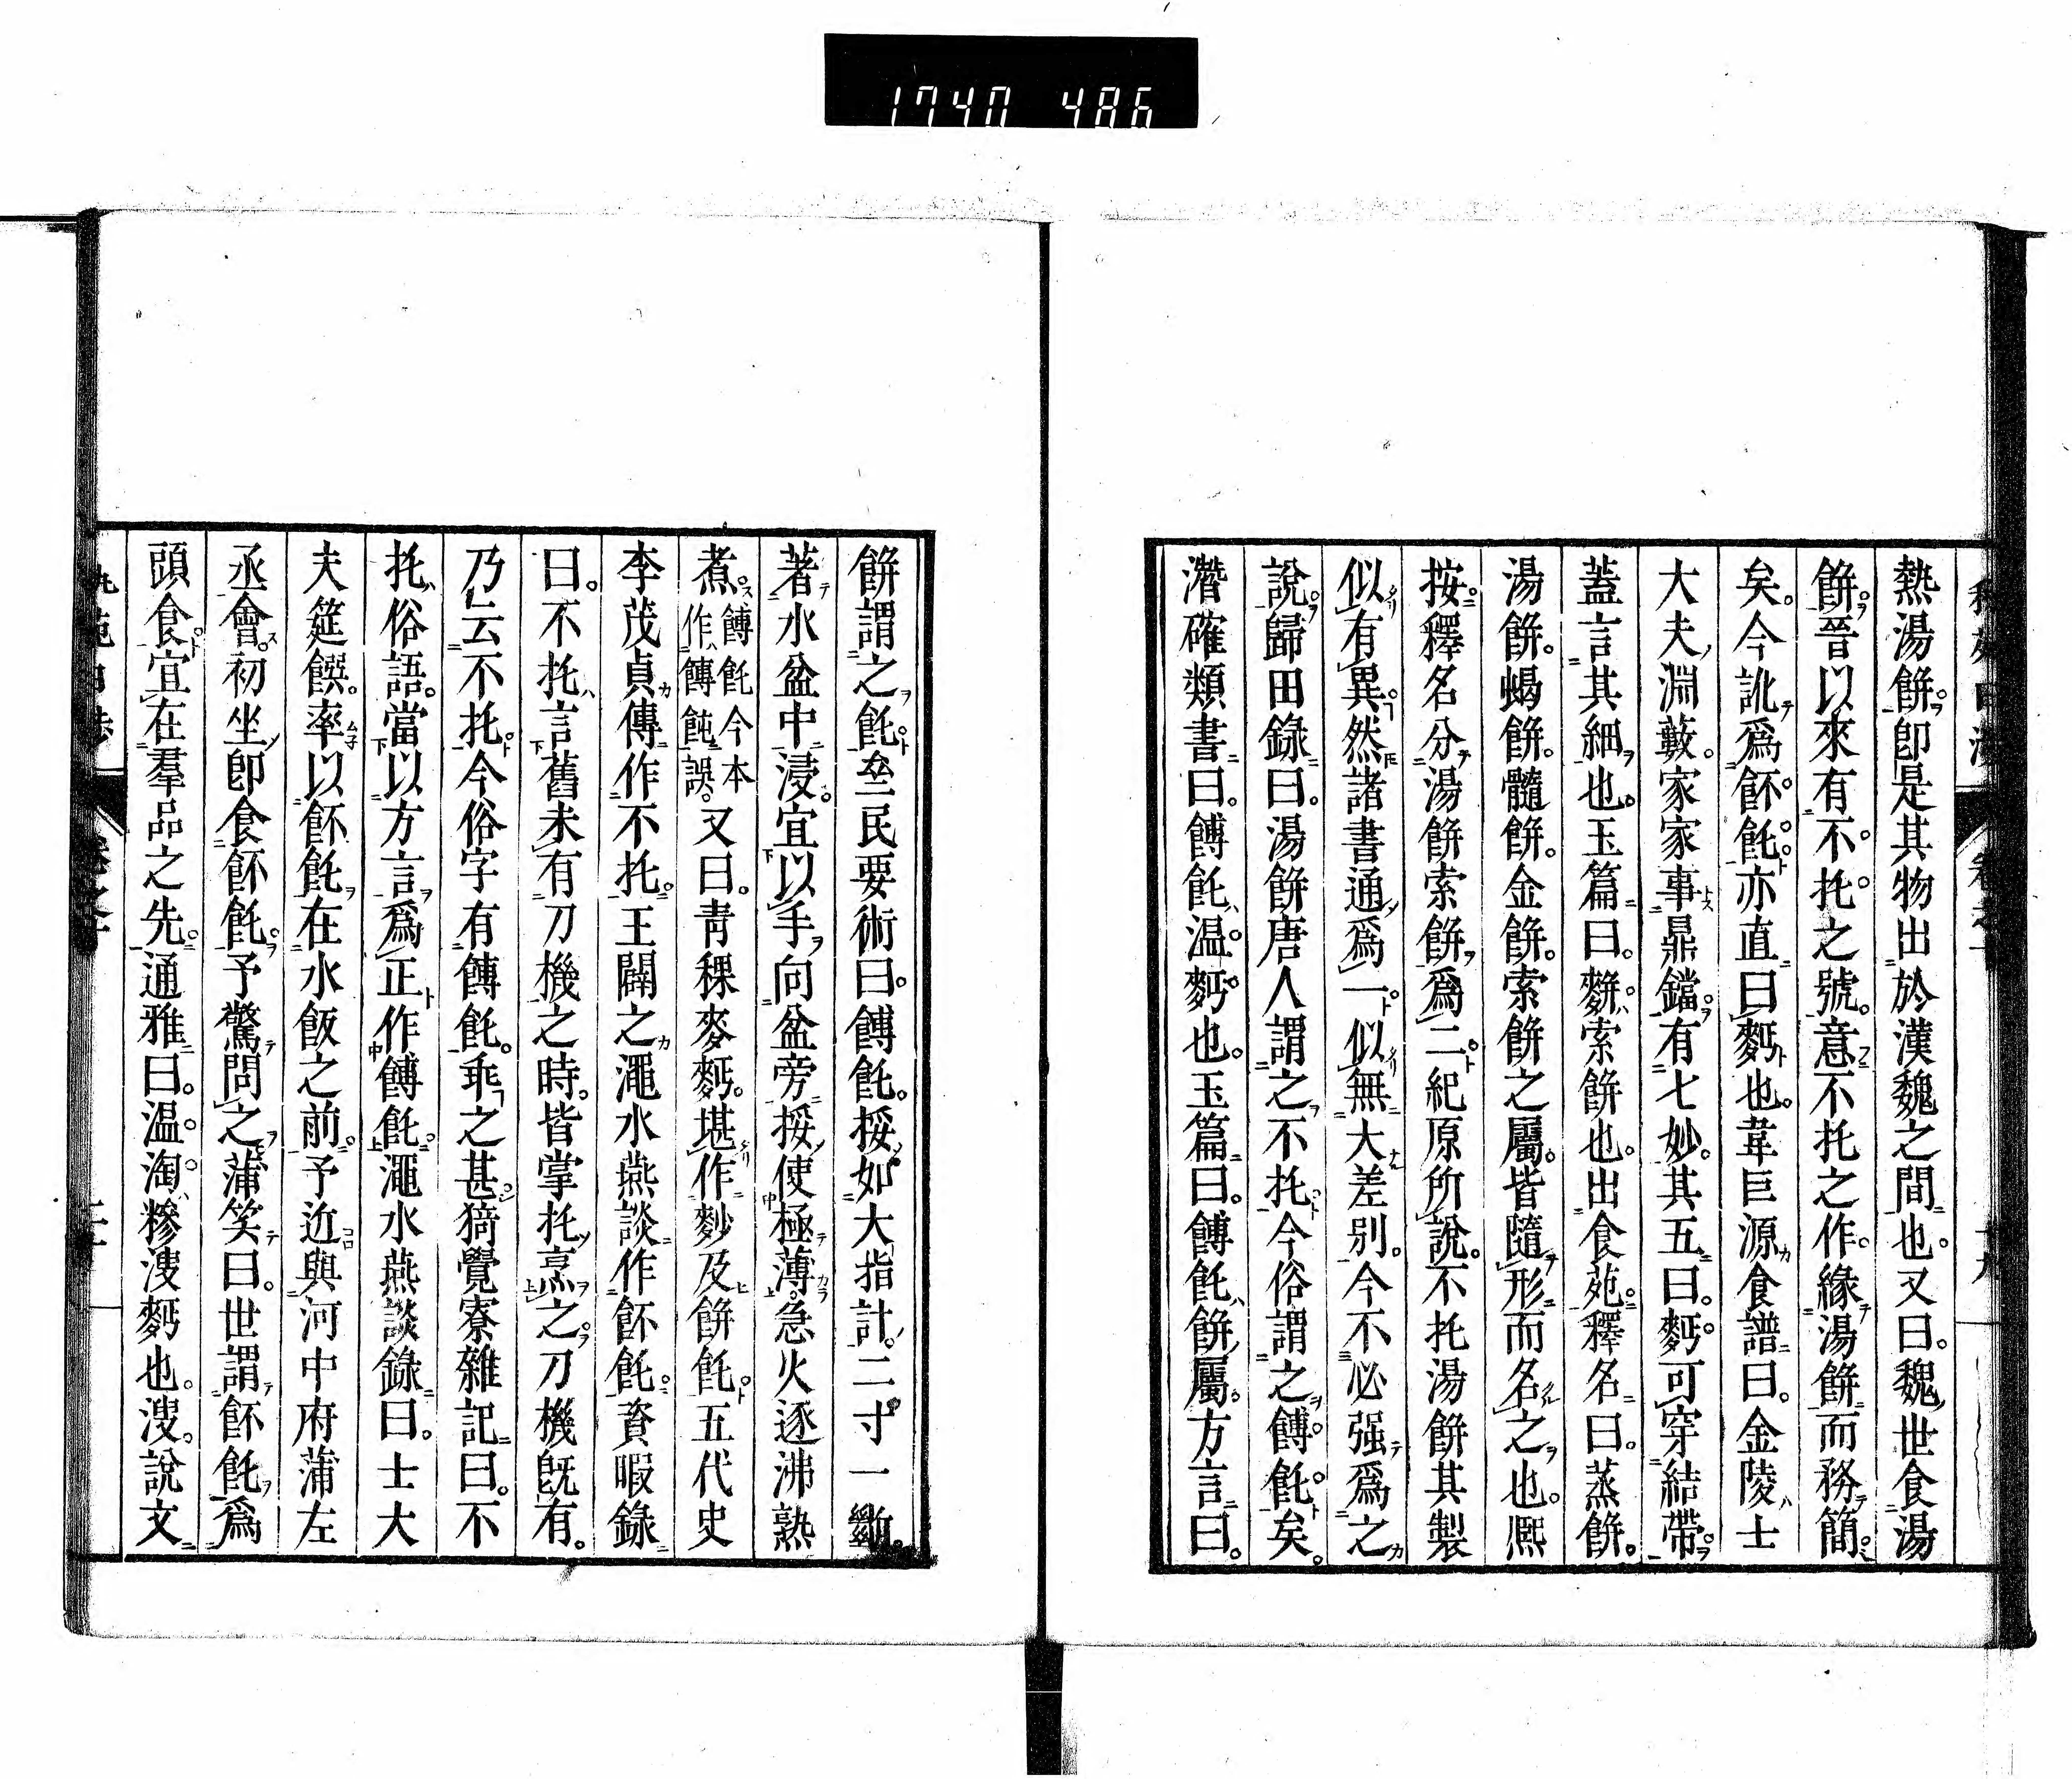 1740 486
熱湯餅。卽是其物出於漢魏之間也。又曰。魏世食湯
餅。晉以來有不托之號。意不托之作。緣湯餅而務簡
矣。今訛爲䬩飥亦直曰麪也。韋巨源食譜曰。金陵士
大夫淵藪。家家事鼎鐺。有七妙。其五曰。麪可穿結帶。
蓋言其細也。玉篇曰。䴵索餅也。出食苑。釋名曰。蒸餅。
湯餅。蝎餅。髓餅。金餅。索餅之屬。皆隨形而名之也。熈
按釋名分湯餅索餅爲二紀原所說。不托湯餅其製
似有異然諸書通爲一似無大差別。今不必强爲之
說歸田錄曰。湯餅唐人謂之不托今俗謂之餺飥矣。
潛確類書曰。餺飥溫麪也。玉篇曰。餺飥餅屬。方言曰。
餅謂之飥。𠫭民要術曰。餺飥。挼如大指計。二寸一斷。
著水盆中浸。宜以手向盆旁挼使極薄。急火逐沸熟
煮。餺飥今本作餺飩誤。又曰。靑稞麥麪。堪作麨及餅飥五代史
李茂貞傳作不托。王闢之澠水燕談作䬩飥。資暇錄
曰。不托言舊未有刀機之時。皆掌托烹之。刀機旣有。
乃云不托今俗字有餺飥。乖之甚猗覺寮雜記曰。不
托俗語。當以方言爲正作餺飥。澠水燕談錄曰。士大
夫筵饌。率以䬩飥在水飯之前。予近與河中府蒲左
丞會。初坐卽食䬩飥。予驚問之蒲笑曰。世謂䬩飥爲
頭食宜在羣品之先。通雅曰。溫淘糝溲麪也。溲。說文